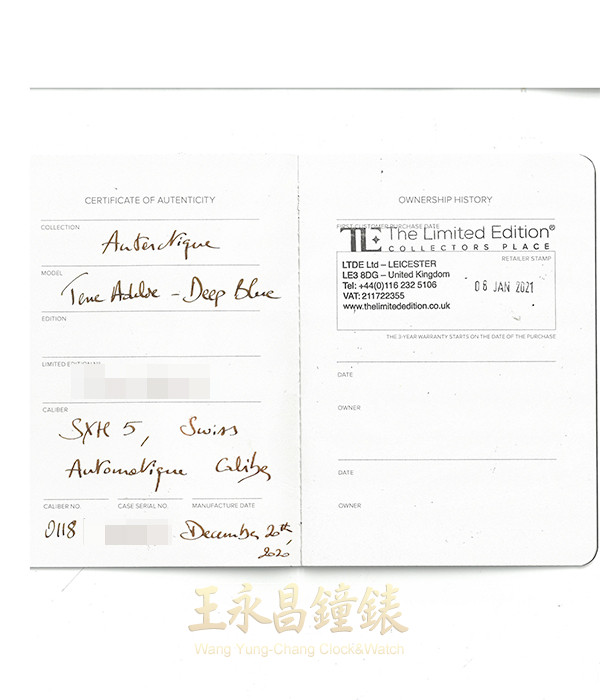 CERTIFICATE OF AUTHENTICITY
COLLECTION
Antarctique
MODEL
Terre Adélie - Deep Blue
EDITION
LIMITED EDITION
CALIBER
SXH 5, Swiss
Automatique Caliber
CALIBER NO.
CASE SERIAL NO.
MANUFACTURE DATE
0118
December 20th,
2020
OWNERSHIP HISTORY
FIRST CUSTOMER PURCHASE DATE
TLE The Limited Edition®
COLLECTORS PLACE
RETAILER STAMP
LTDE Ltd – LEICESTER
LE3 8DG – United Kingdom
Tel: +44(0)116 232 5106
VAT: 211722355
www.thelimitededition.co.uk
06 JAN 2021
THE 3-YEAR WARRANTY STARTS ON THE DATE OF THE PURCHASE
DATE
OWNER
DATE
OWNER
王永昌鐘錶
Wang Yung-Chang Clock&Watch